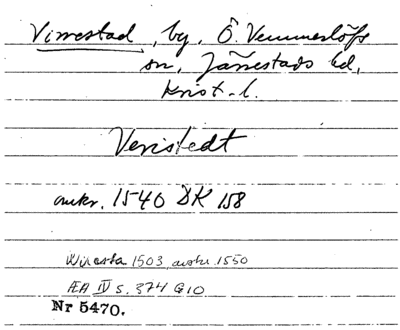 Virrestad, by, Ö. Vemmerlöfs
sn, Järrestads hd,
Krist. l.
Veristedt
omkr. 1540 DK 158
Wiresta 1503, avskr. 1550
ÆA IV s. 374 G10
Nr 5470.